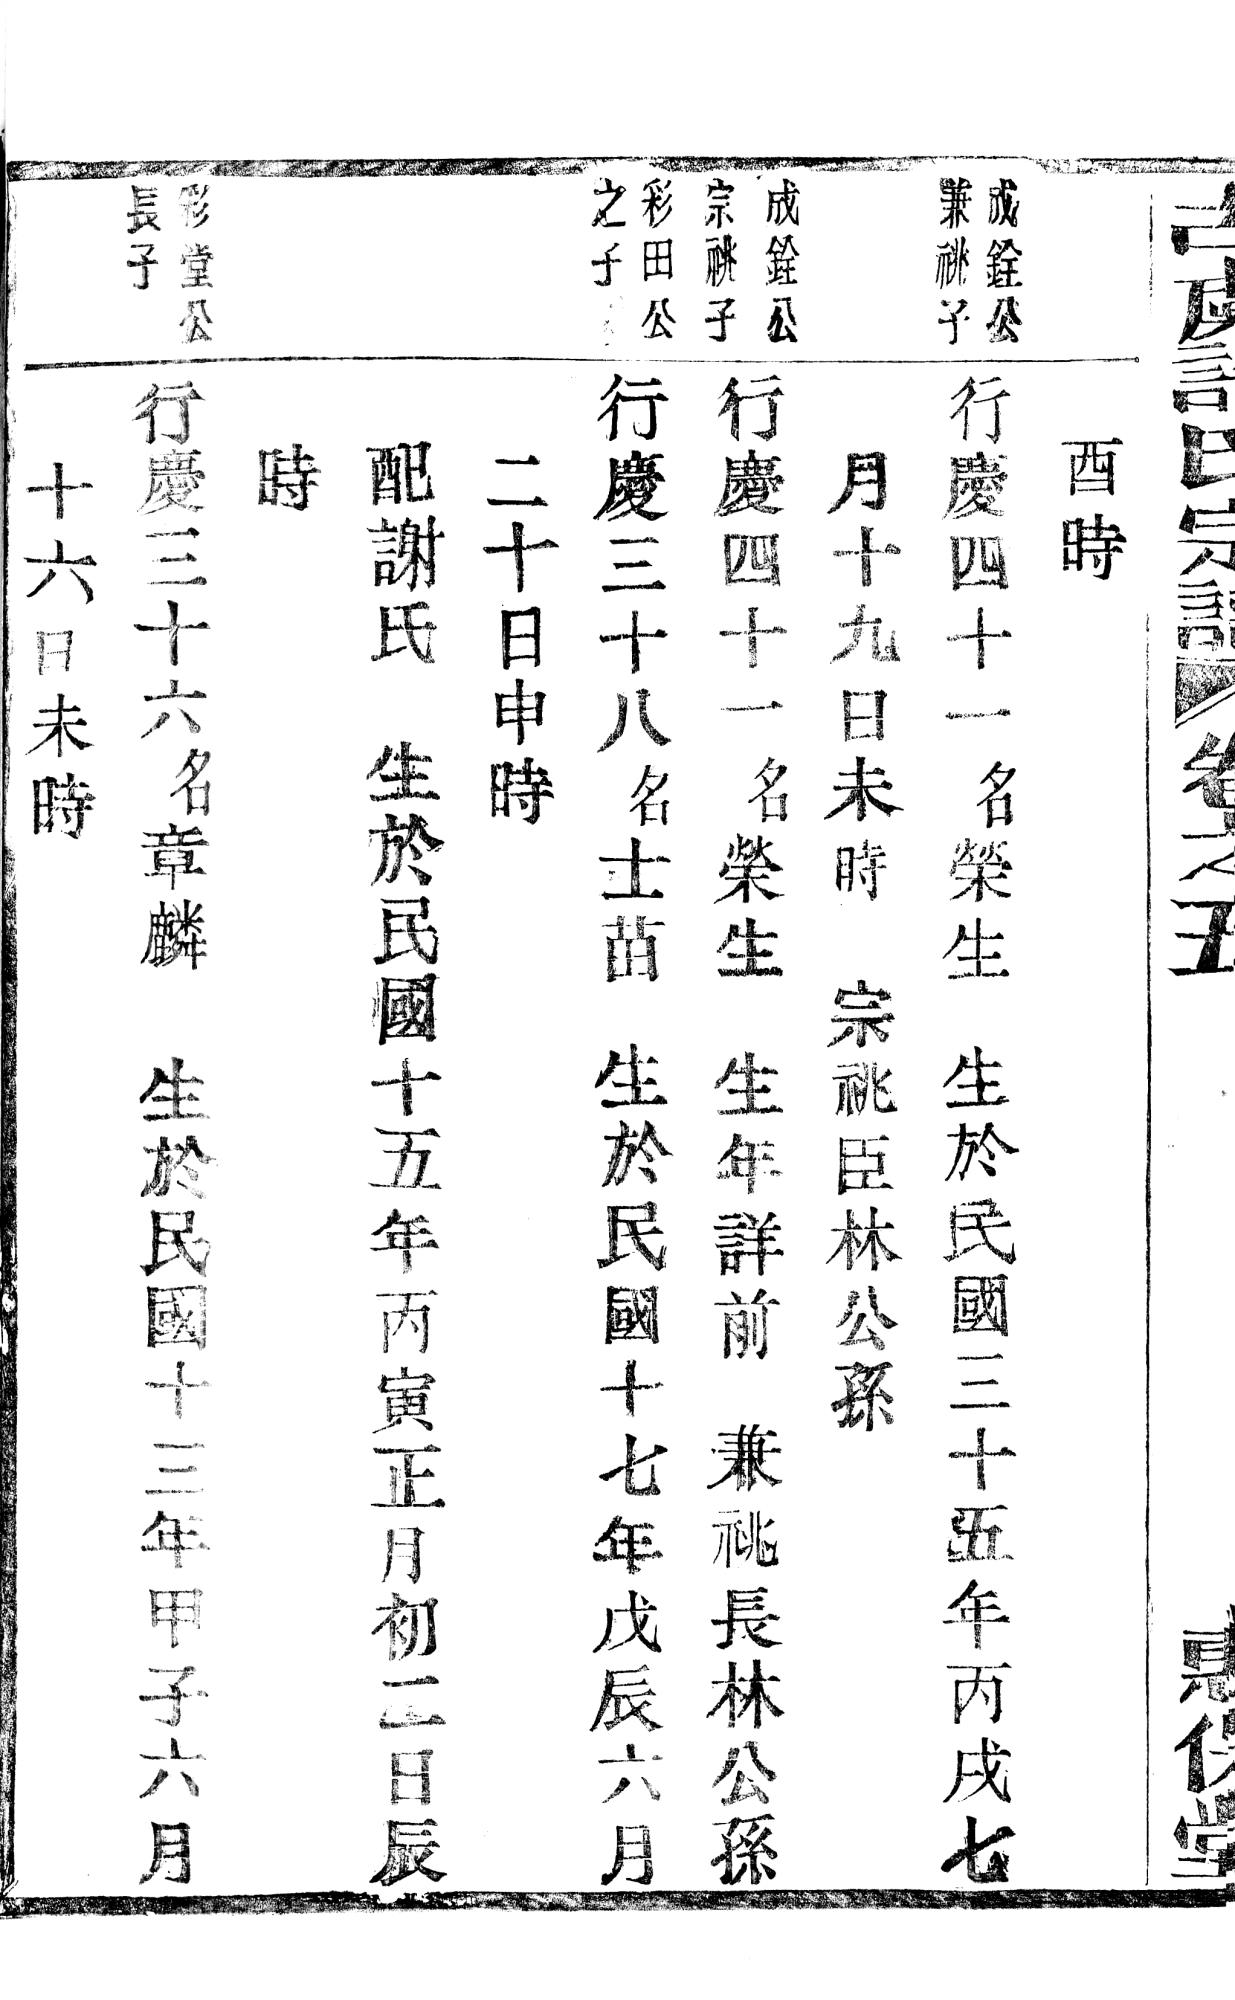 氏宗譜 卷之五
堂
酉時
成銓公
兼祧子
行慶四十一名榮生 生於民國三十五年丙戌七
月十九日未時 宗祧臣林公孫
成銓公
宗祧子
行慶四十一名榮生 生年詳前 兼祧長林公孫
彩田公
之子
行慶三十八名士苗 生於民國十七年戊辰六月
二十日申時
配謝氏 生於民國十五年丙寅正月初二日辰
時
彩堂公
長子
行慶三十六名章麟 生於民國十三年甲子六月
十六日未時